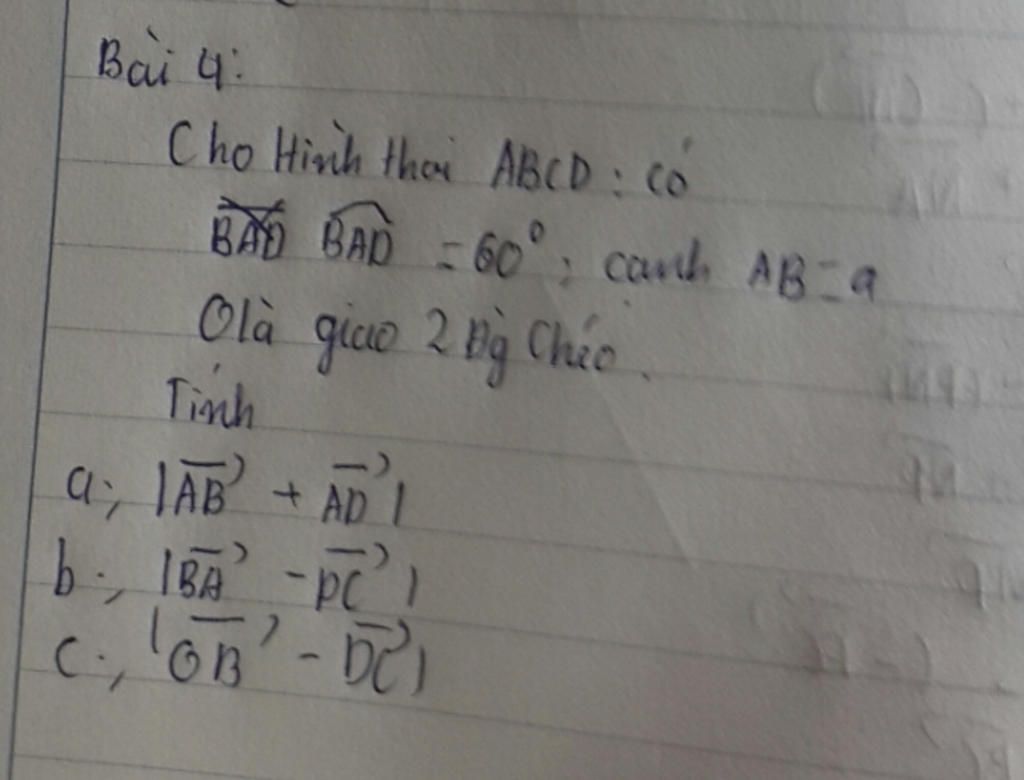 Bài 4:
Cho Hình thoi ABCD: có
BAD BAD = 60°; cạnh AB = a
O là giao 2 Đg Chéo.
Tính
a; |AB + AD|
b; |BA - DC|
c; |OB - DC|